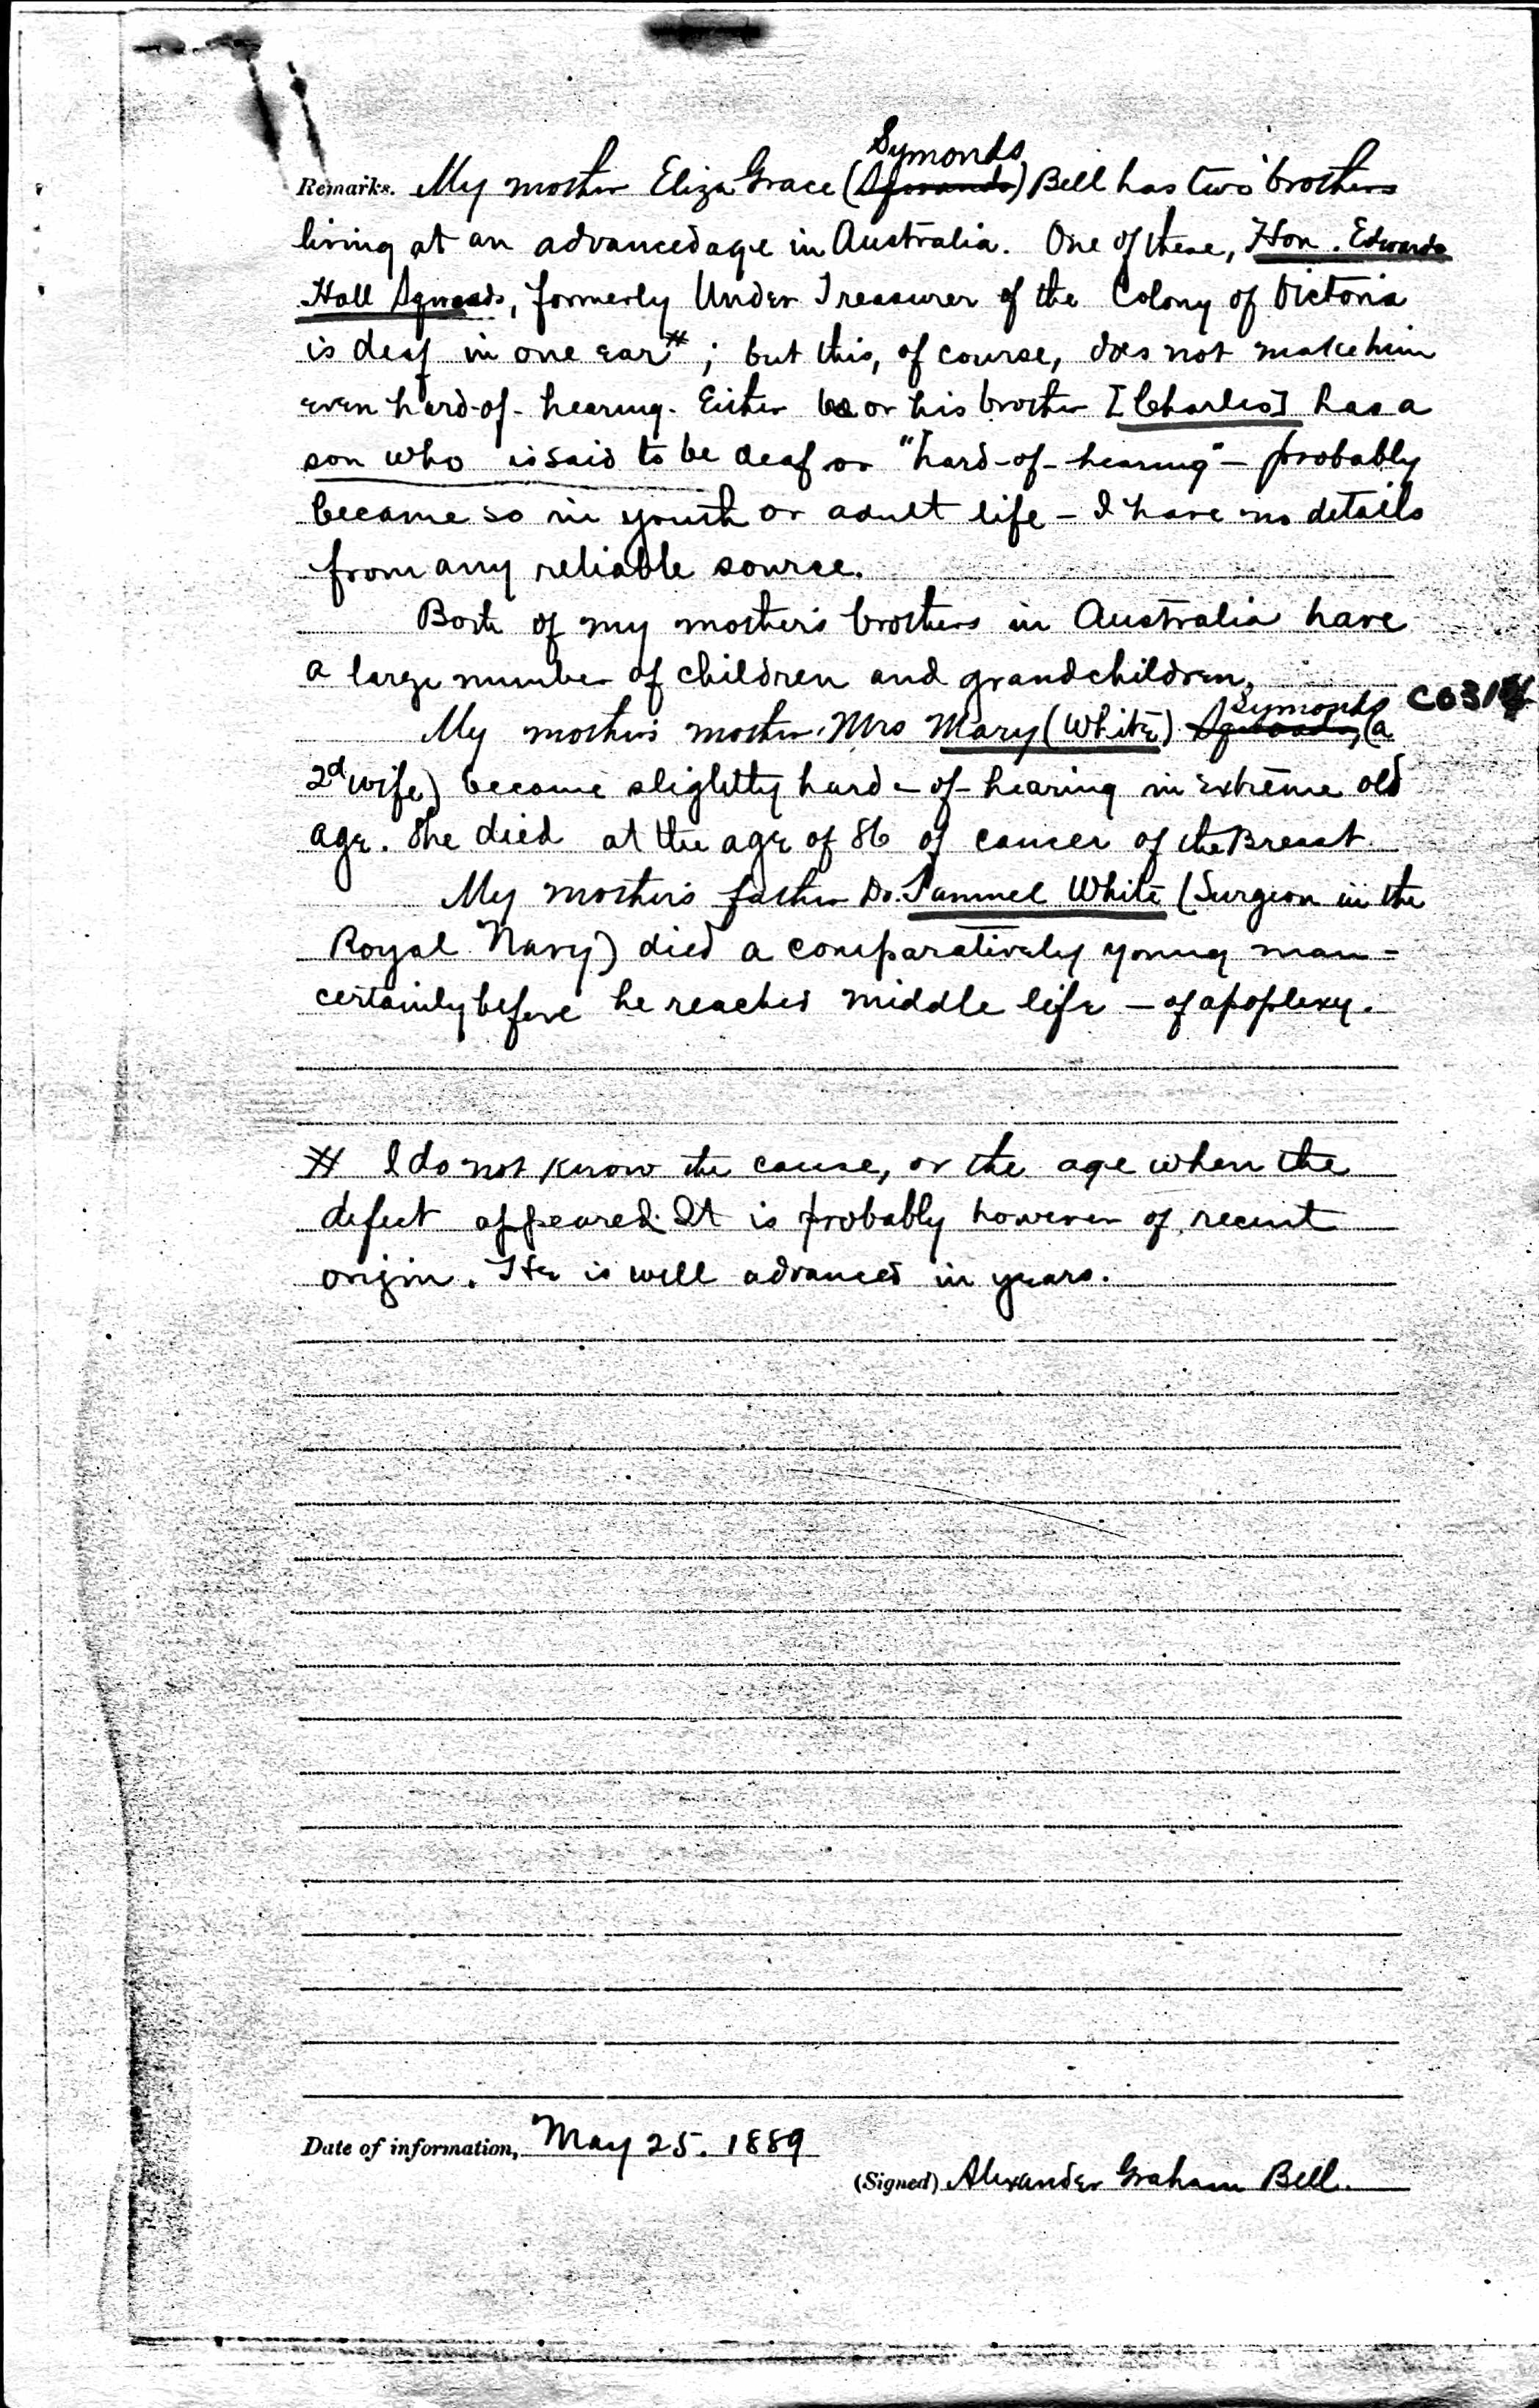 Symonds
Remarks. My mother Eliza Grace (Symonds) Bell has two brothers
living at an advanced age in Australia. One of these, Hon. Edward
Hall Symonds, formerly Under Treasurer of the Colony of Victoria
is deaf in one ear#; but this, of course, does not make him
even hard-of-hearing. Either he or his brother [Charles] has a
son who is said to be deaf or "hard-of-hearing" – probably
became so in youth or adult life – I have no details
from any reliable source.
Both of my mother's brothers in Australia have
a large number of children and grandchildren.
C031
Symonds
My mother's mother Mrs Mary (White) Symonds, (a
2d wife) became slightly hard-of-hearing in extreme old
age. She died at the age of 86 of cancer of the Breast.
My mother's father Dr. Samuel White (Surgeon in the
Royal Navy) died a comparatively young man –
certainly before he reached middle life – of apoplexy.
# I do not know the cause, or the age when the
defect appeared. It is probably however of recent
origin. He is well advanced in years.
Date of information, May 25. 1889
(Signed) Alexander Graham Bell.